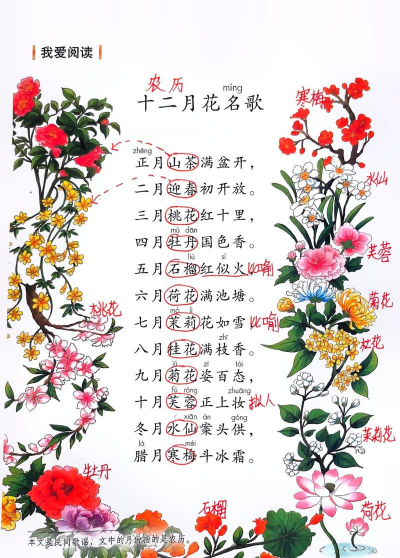 我爱阅读
农历
míng
十二月花名歌
寒梅
zhēng
正月山茶满盆开，
二月迎春初开放。
水仙
三月桃花红十里，
mǔ dān
四月牡丹国色香。
芙蓉
liú sì
五月石榴红似火 比喻
菊花
六月荷花满池塘。
桃花
mò lì
七月茉莉花如雪 比喻
zhī
八月桂花满枝香。
jú zī tài
九月菊花姿百态，
茉莉花
fú róng zhuāng
十月芙蓉正上妆 拟人
xiān àn gòng
冬月水仙案头供，
là méi
腊月寒梅斗冰霜。
牡丹
荷花
石榴
本文是民间歌谣，文中的月份指的是农历。